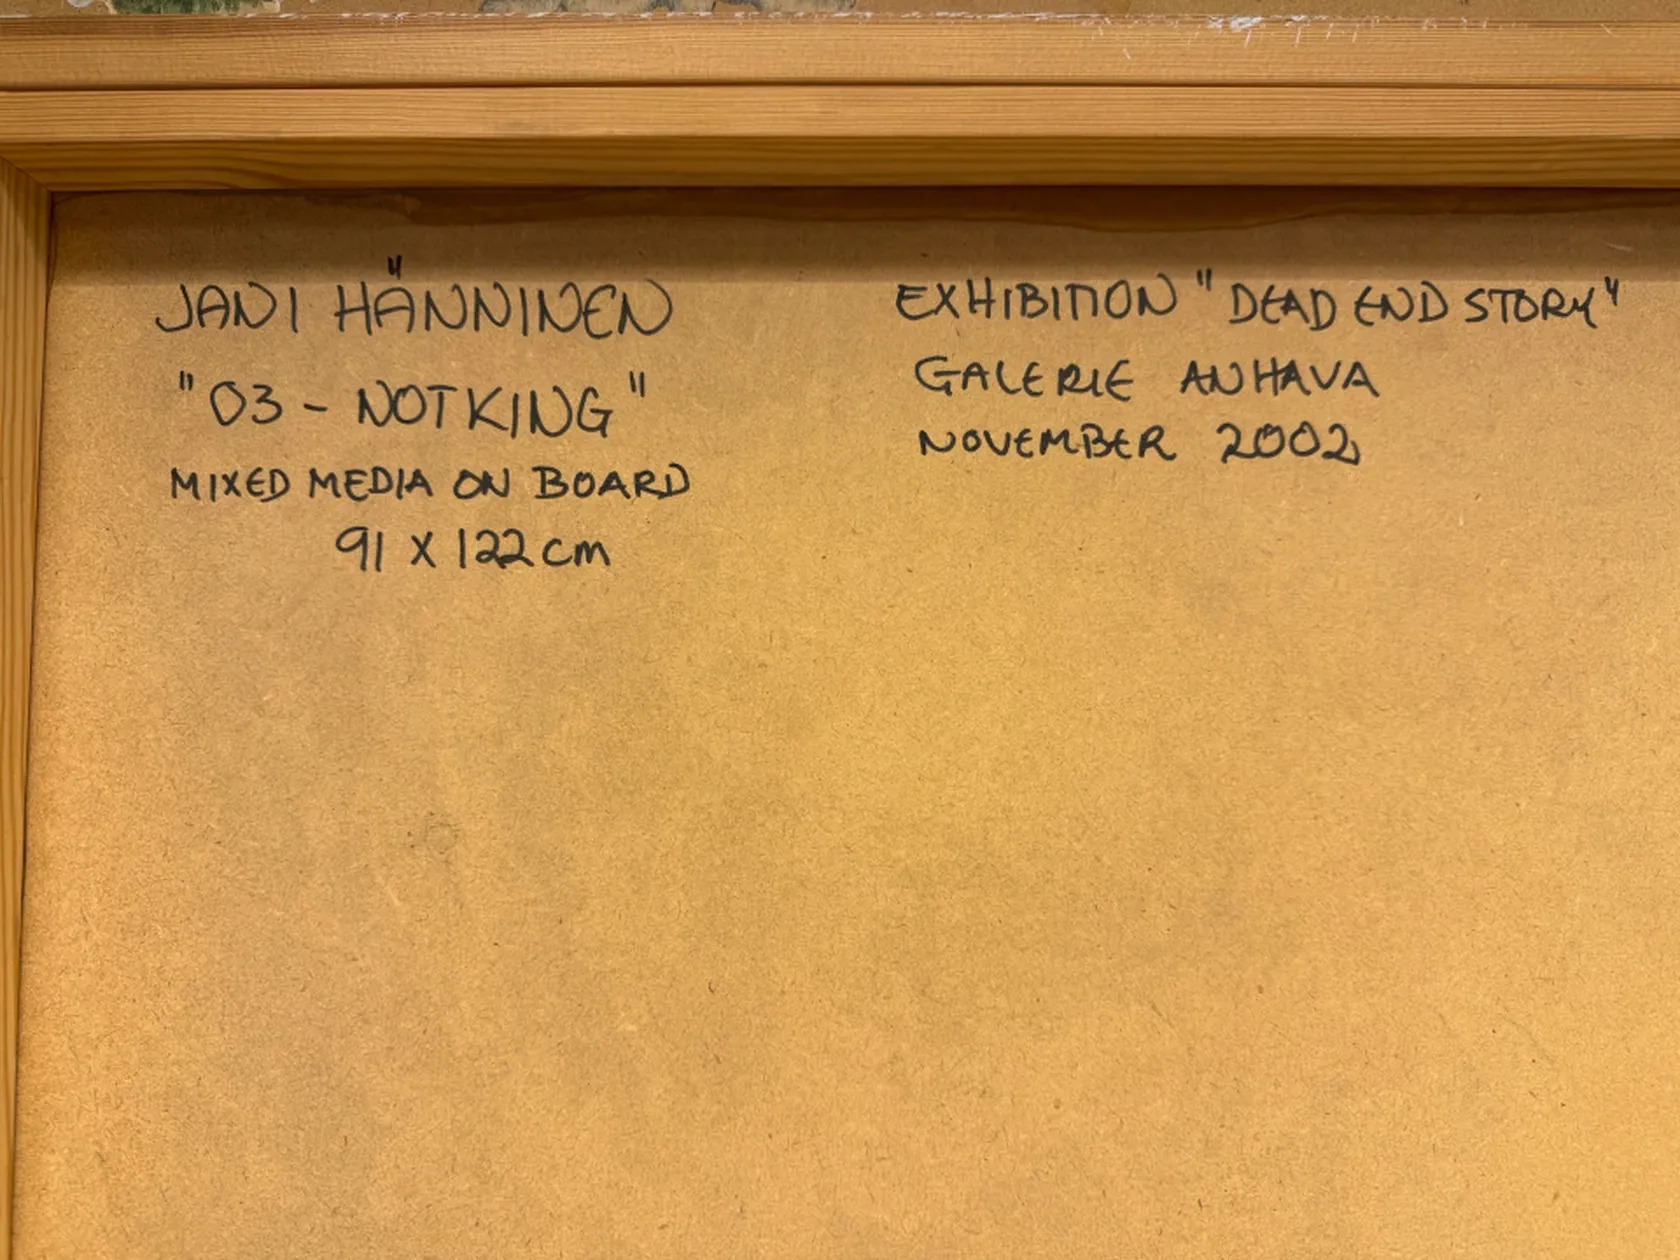 JANI HÄNNINEN
"03 - NOTKING"
MIXED MEDIA ON BOARD
91 X 122 cm
EXHIBITION "DEAD END STORY"
GALERIE ANHAVA
NOVEMBER 2002